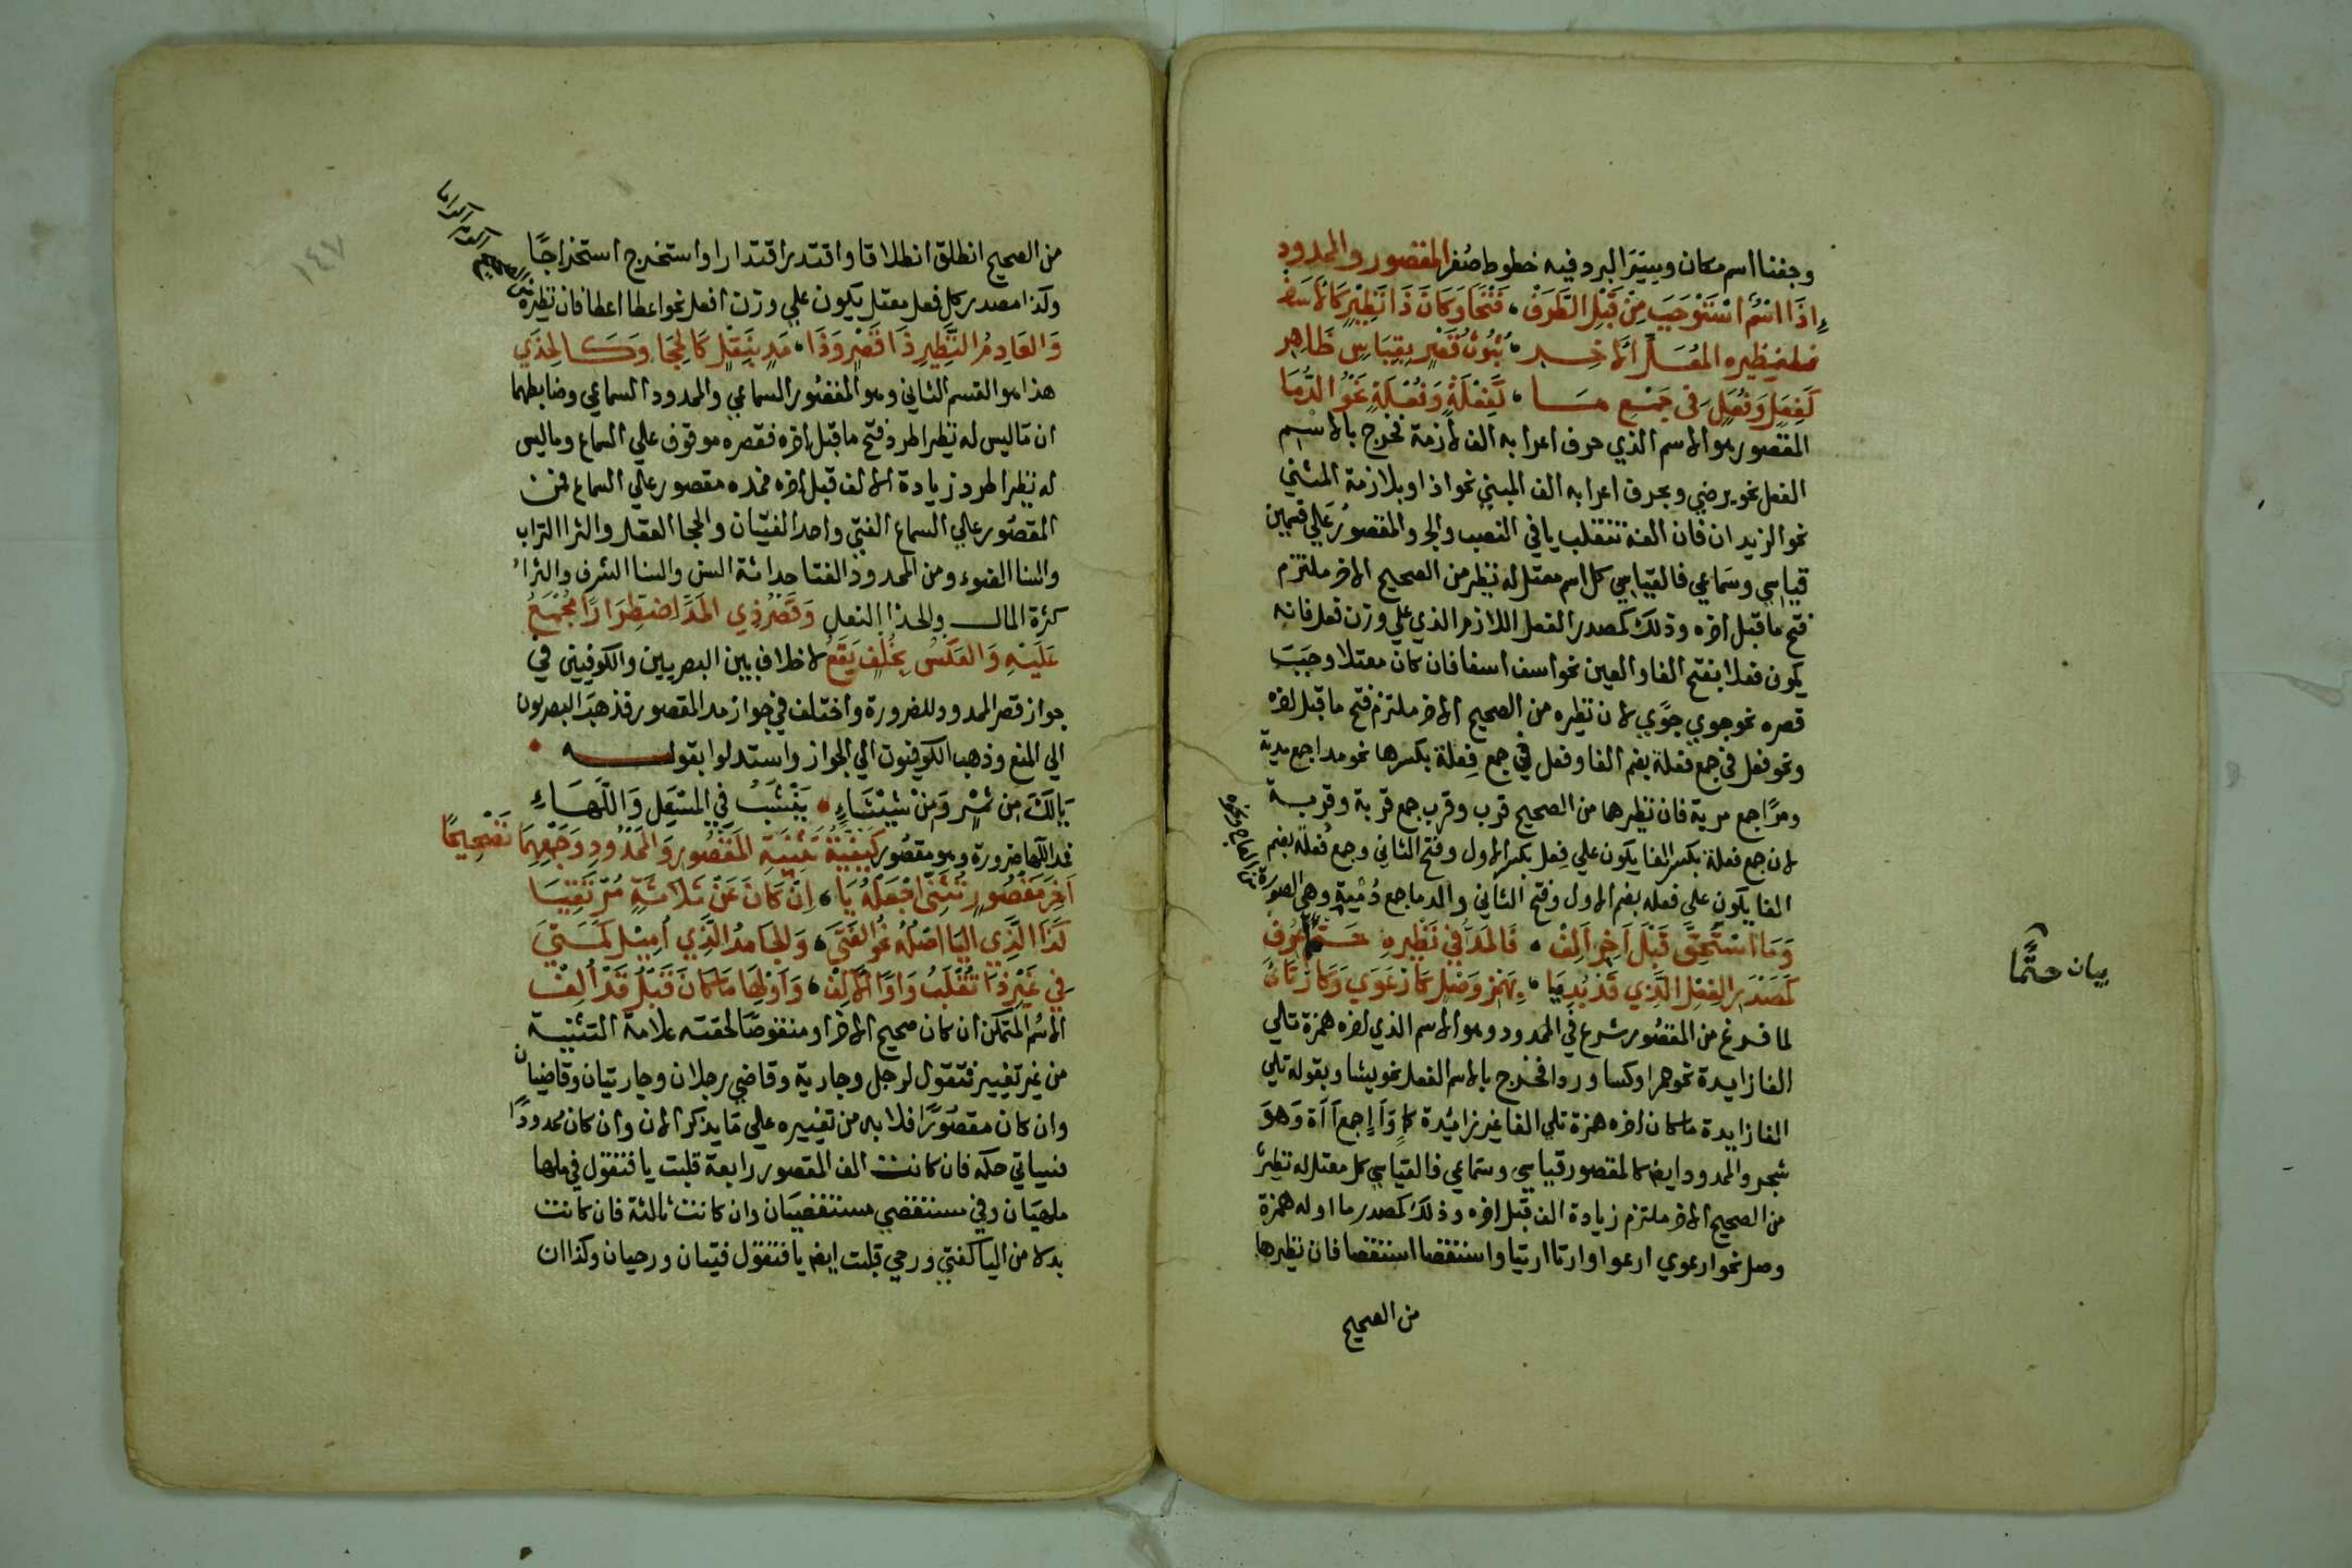 وجفنا اسم مكان وييتزا لبرد فيه خطوط صُفر المقصور والممدود
إِذَا اسْمٌ اسْتَوْجَبَ مِنْ قَبْلِ الطَّرَفْ فَتْحًا وَكَانَ ذَا نَظِيْرٍ كَالاَسَفْ
فلنظيره المُعَلِّ الاَخِـــر ثُبُوتُ قَصْرٍ بِقِيَاسٍ ظَاهِرِ
كَفِعَلٍ وَفُعَلٍ فى جَمْعِ مَـــا كَفِعْلَةٍ وَفُعْلَةٍ نَحْوُ الدُّمَا
المقصور هو الاسم الذي حرف اعرابه الف لازمة فخرج بالاسم
الفعل نحو يرضي وبحرف اعرابه الف المبني نحو اذا وبلازمة المثني
نحو الزيدان فان الفه تنقلب يا في النصب والجر والمقصورُ عَلي قسمين
قياسي وسَماعي فالقياسي كل اسم معتل له نظير من الصحيح الاخر ملتزم
فتح ما قبل اخره وذلك كمصدر الفعل اللازم الذي علي وزن فعل فانه
يكون فعلا بفتح الفا والعين نحو اسف اسفا فان كان معتلا وجَبَ
قصره نحو جوي جوًي لان نظيره من الصحيح الاخر ملتزم فتح ما قبل اخره
ونحو فعل في جمع فعلة بضم الفا وفعل في جمع فِعلة بكسرها نحو مدا جمع مدية
ومرًا جمع مرية فان نظيرهما من الصحيح قرب وقرب جمع قربة وقربـــة
لان جمع فعلة بكسر الفا يكون علي فِعل بكسر الاول وفتح الثاني وجمع فُعلة بضم
الفا يكون علي فعل بضم الاول وفتح الثاني والدما جمع دُمْية وهي الصورة
وَمَا اسْتَحَقَّ قَبْلَ اَخِرٍ اَلِفْ فَالمَدُّ في نَظِيرِهِ حَتْمًا عُرِفِ
كَمَصْدَرِ الفِعْلِ الَّذِي قَدْ بُدِيَا بِهَمْزِ وَصْلٍ كَارْعَوَي وَكَارْتَاَي
لما فرغ من المقصُور شرع في الممدود وهو الاسم الذي اخره همزة تلي
الفا زايدة نحو حمرا وكسا وردا فخرج بالاسم الفعل نحو يشا وبقوله تلي
الفا زايدة ما كان اخره همزة تلي الفا غير زائدة كماٍ وآإ جمع آآة وَهوَ
شجر والممدود ايضا كالمقصور قياسي وسَماعي فالقياسي كل معتل له نظير
من الصحيح الاخر ملتزم زيادة الف قبل اخره وذلك كمصدر ما اوله همزة
وصل نحو ارعوي ارعوا وارتا ارتيا واستقصا استقصا فان نظيرها
من الصحيح
بيان حتمًا
١٤٧
من الصحيح انطلق انطلاقا واقتدر اقتدارا واستخرج استخراجًا
وكذا مصدر كل فعل معتل يكون علي وزن افعل نحو اعطا اعطا فان نظيره
وَالعَادِمُ النَّظِيرِ ذَا قَصْرٍ وَذَا مَدٍ بِنَقْلٍ كَالحِجَا وَكَـالحِذَي
هذا هو القسم الثاني وهو المقصُور السماعي والممدود السماعي وضابطهما
ان مَا ليس له نظير اطرد فتح ما قبل اخره فقصره موقوف علي السماع وما ليس
له نظير اطرد زيادة الالف قبل اخره فمده مقصور علي السماع فمن
المقصُور علي السماع الفتي واحد الفتيَان والحجا العقل والثرا التراب
والسنا الضوء ومن الممدود الفتا حداثة السن والسنا الشرف والثراُ
كثرة المال والحذا النعل وَقَصْرُ ذِي المَدِّ اضْطِرَارًا مُجْمَعُ
عَلَيْهِ وَالعَكْسُ بِخُلْفٍ يَقَعُ لا خلاف بين البصريين والكوفيين في
جواز قصر الممدود للضرورة واختلف في جواز مد المقصور فذهبَ البصريون
الي المنع وذهب الكوفيون الي الجواز واستدلوا بقولــــه
يَالَكَ مِن تَمْرٍ وَمِنْ شِيْشَاءِ يَنْشَبُ فِي المَسْعَلِ وَاللَّهَــاءِ
فمد اللَّها ضرورة وهو مقصُور كَيْفِيَّةُ تَثْنِيَةِ المَقْصُورِ وَالمَمْدُودِ وَجَمْعِهِمَا تَصْحِيحًا
اَخِرَ مَقْصُورٍ تُثَنِّي اجْعَلْهُ يَا اِنْ كَانَ عَنْ ثَلاَثَةٍ مُرْتَقِيَــا
كَذَا الَّذِي اليَا اصْلُهُ نَحْوُ الفَتَي وَالجَامدُ الَّذِي اُمِيْلَ كَمَتَـي
فِي غَيْرِ ذَا تُقْلَبُ وَاوًا الاَلِفْ وَاَوْلِهَا مَا كَانَ قَبْلُ قَدْ اُلِفْ
الاسْم المتمكن ان كان صحيح الاخر او منقوصًا لحقته علامة التثنيـــة
من غير تغيير فتقول لرجل وجارية وقاضي رجلان وجاريتان وقاضيان
وان كان مقصُورًا فلا بد من تغييره علي مَا يذكر الان وان كان ممدودًا
فسياتي حكمه فان كانت الف المقصور رابعة قلبت يا فتقول في ملها
ملهيَان وفي مستقصي مستقصيَان وان كانت ثالثة فان كانت
بدلا من اليا كفتي ورحي قلبت ايضا يا فتقول فتيان ورحيان وكذا ان